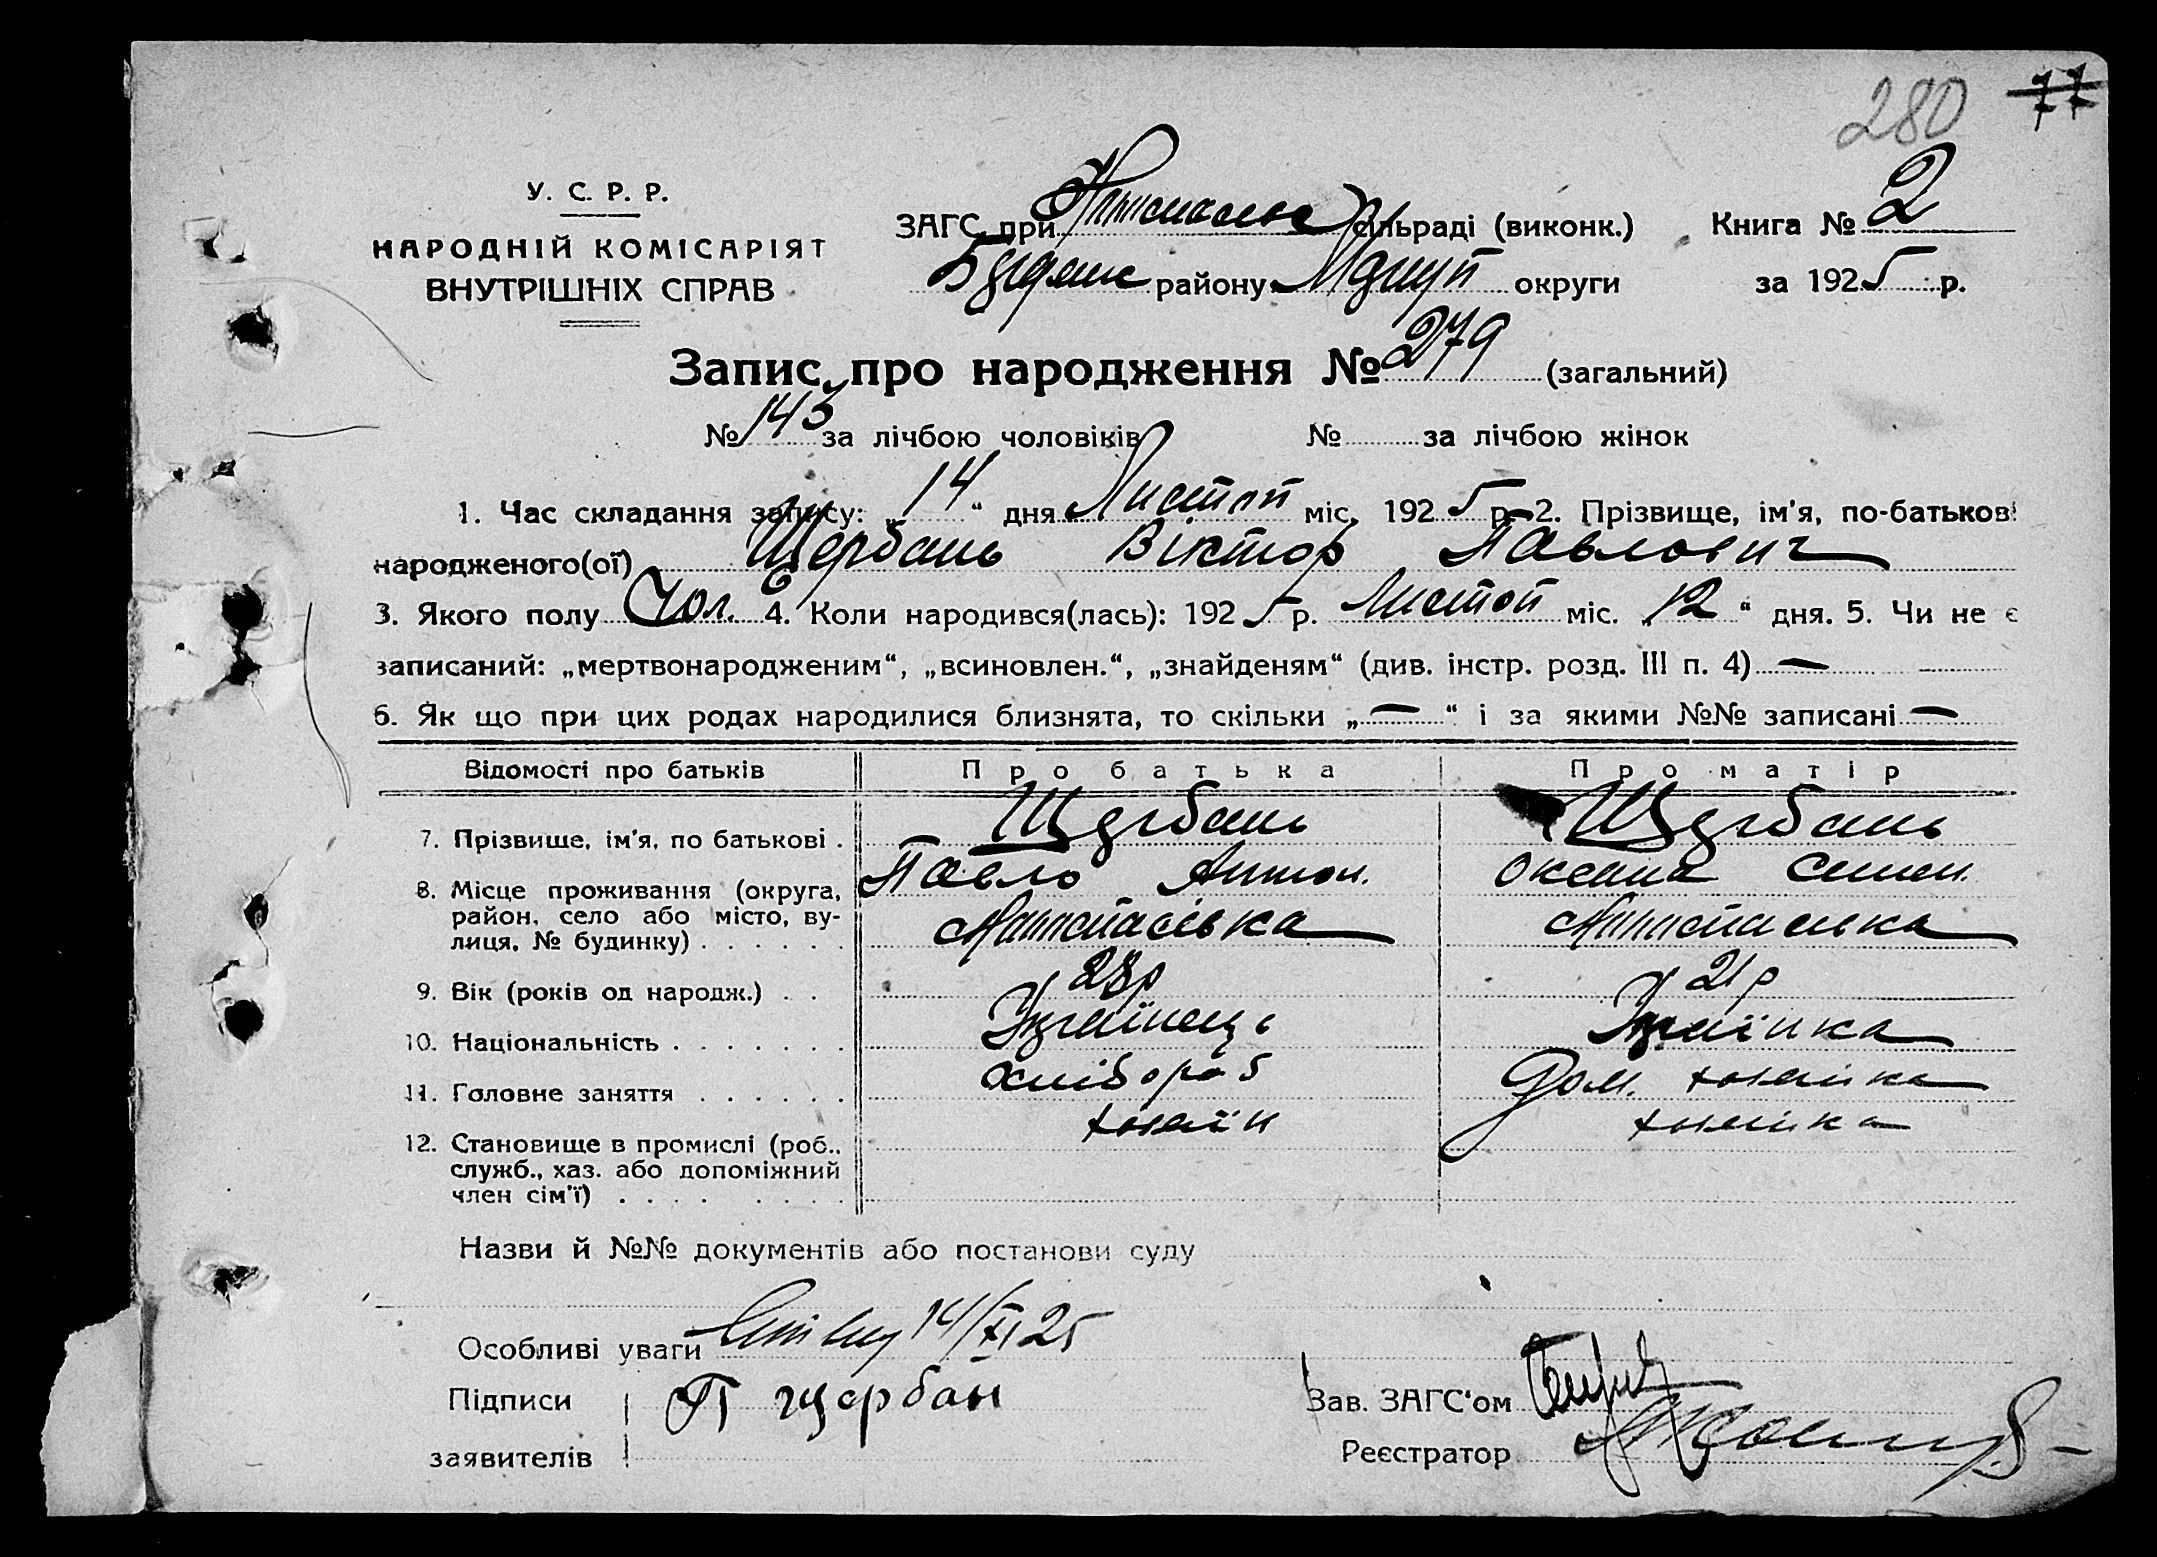 280 77
У. С. Р. Р.
НАРОДНІЙ КОМІСАРІЯТ
ВНУТРІШНІХ СПРАВ
ЗАГС при сільраді (виконк.) Книга № 2
району округи за 1925 р.
Запис про народження № 279 (загальний)
№ 143 за лічбою чоловіків № за лічбою жінок
1. Час складання запису: „14“ дня Листоп міс. 1925 р. 2. Прізвище, ім'я, по-батькові
народженого(ої) Щербань Віктор Павлович
3. Якого полу Чол. 4. Коли народився(лась): 1925 р. Листоп міс. „12“ дня. 5. Чи не є
записаний: „мертвонародженим“, „всиновлен.“, „знайденям“ (див. інстр. розд. III п. 4) —
6. Як що при цих родах народилися близнята, то скільки „—“ і за якими №№ записані —
Відомості про батьків Про батька Про матір
7. Прізвище, ім'я, по батькові . Щербань Щербань
Павло Антон. Оксана Семен.
8. Місце проживання (округа,
район, село або місто, ву-
лиця, № будинку) . . . . . .
9. Вік (років од народж.) . . 28р 21р
10. Національність . . . . . . . Українець Українка
11. Головне заняття . . . . . . хлібороб Дом. хозяйка
12. Становище в промислі (роб., хозяїн хозяйка
служб., хаз. або допоміжний
член сім'ї) . . . . . . . .
Назви й №№ документів або постанови суду
Особливі уваги 14/XI 25
Підписи П Щербан Зав. ЗАГС'ом
заявителів Реєстратор